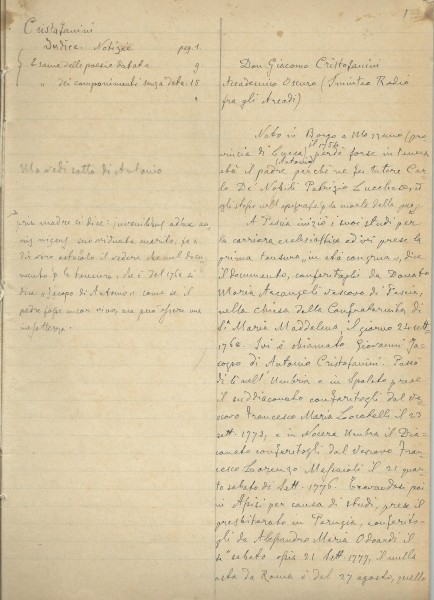 Cristofanini
Indice. Notizie pag. 1.
Esame delle poesie datate 9
" dei componimenti senza data. 18
Ma vedi sotto di Antonio
sua madre si dice:
viro
il vedere che nel docu-
mento p. la tonsura, che è del 1762 si
dice "Jacopo di Antonio" come se il
padre fosse ancor vivo, ma può essere una
inesattezza.
1
Don Giacomo Cristofanini
Accademico Oscuro
fra gli Arcadi)
Nato in Borgo a Mozzano (pro-
vincia di Lucca) il 1754 perdè forse in tenera
età il padre Antonio perchè ne fu tutore Car-
lo De' Nobili Patrizio Lucchese,
gli stesso nell'epigrafe p. la morte della
A Pescia iniziò i suoi studi per
la carriera ecclesiastica ed ivi prese la
prima tonsura "in età congrua", dice
il documento, conferitagli da Donato
Maria Arcangeli vescovo di Pescia,
nella Chiesa della Confraternita di
Sta Maria Maddalena, il giorno 24 sett.
1762. Ivi è chiamato Giovanni Ja-
copo di Antonio Cristofanini. Passò
di lì nell'Umbria e in Spoleto prese
il suddiaconato conferitogli dal Ve-
scovo Francesco Maria Locatelli il 23
sett. 1775, e in Nocera Umbra il Dia-
conato conferitogli dal Vescovo Fran-
cesco Lorenzo Massaioli il 21 quar-
to sabato di Sett. 1776. Trovandosi poi
in Assisi per causa di studi, prese il
presbiterato in Perugia, conferito-
gli da Alessandro Maria Odoardi il
sabato ossia 21 Sett. 1777, il nulla
osta da Roma è del 27 agosto, quello